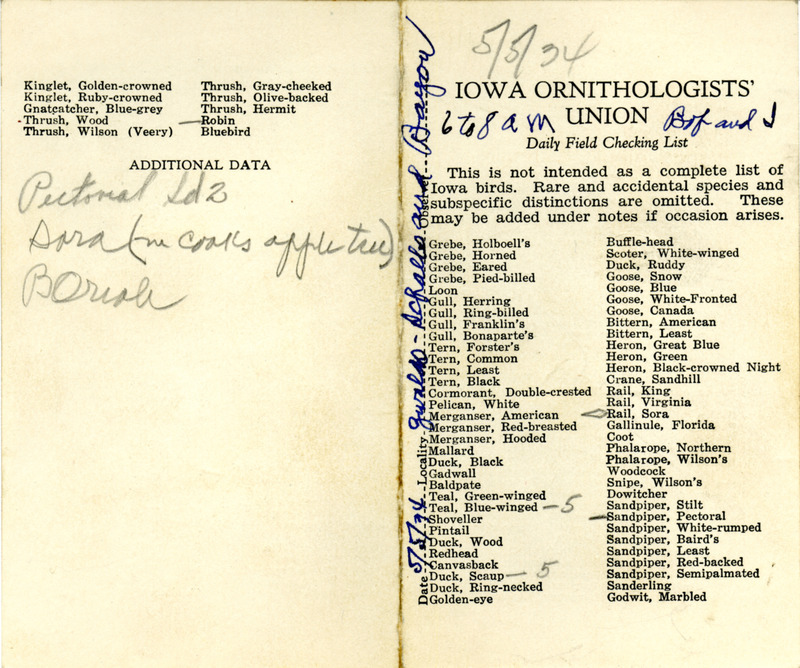 Kinglet, Golden-crowned
Kinglet, Ruby-crowned
Gnatcatcher, Blue-grey
- Thrush, Wood
Thrush, Wilson (Veery)
Thrush, Gray-cheeked
Thrush, Olive-backed
Thrush, Hermit
— Robin
Bluebird
ADDITIONAL DATA
Pectoral Sd 2
Sora (in cooks apple tree)
B Oriole
5/5/34
IOWA ORNITHOLOGISTS'
UNION
6 to 8 a m
Bop and I
Daily Field Checking List
This is not intended as a complete list of
Iowa birds. Rare and accidental species and
subspecific distinctions are omitted. These
may be added under notes if occasion arises.
Date 5/5/34 Locality and Bayou Observer
Grebe, Holboell's
Grebe, Horned
Grebe, Eared
Grebe, Pied-billed
Loon
Gull, Herring
Gull, Ring-billed
Gull, Franklin's
Gull, Bonaparte's
Tern, Forster's
Tern, Common
Tern, Least
Tern, Black
Cormorant, Double-crested
Pelican, White
Merganser, American
Merganser, Red-breasted
Merganser, Hooded
Mallard
Duck, Black
Gadwall
Baldpate
Teal, Green-winged
Teal, Blue-winged — 5
Shoveller
Pintail
Duck, Wood
Redhead
Canvasback
Duck, Scaup — 5
Duck, Ring-necked
Golden-eye
Buffle-head
Scoter, White-winged
Duck, Ruddy
Goose, Snow
Goose, Blue
Goose, White-Fronted
Goose, Canada
Bittern, American
Bittern, Least
Heron, Great Blue
Heron, Green
Heron, Black-crowned Night
Crane, Sandhill
Rail, King
Rail, Virginia
Rail, Sora
Gallinule, Florida
Coot
Phalarope, Northern
Phalarope, Wilson's
Woodcock
Snipe, Wilson's
Dowitcher
Sandpiper, Stilt
— Sandpiper, Pectoral
Sandpiper, White-rumped
Sandpiper, Baird's
Sandpiper, Least
Sandpiper, Red-backed
Sandpiper, Semipalmated
Sanderling
Godwit, Marbled